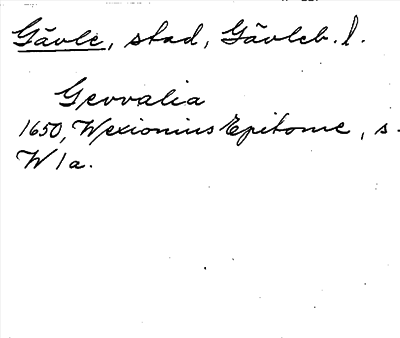 Gävle, stad, Gävleb. l.
Gevvalia
1650, Wexionius Epitome, s.
W 1 a.